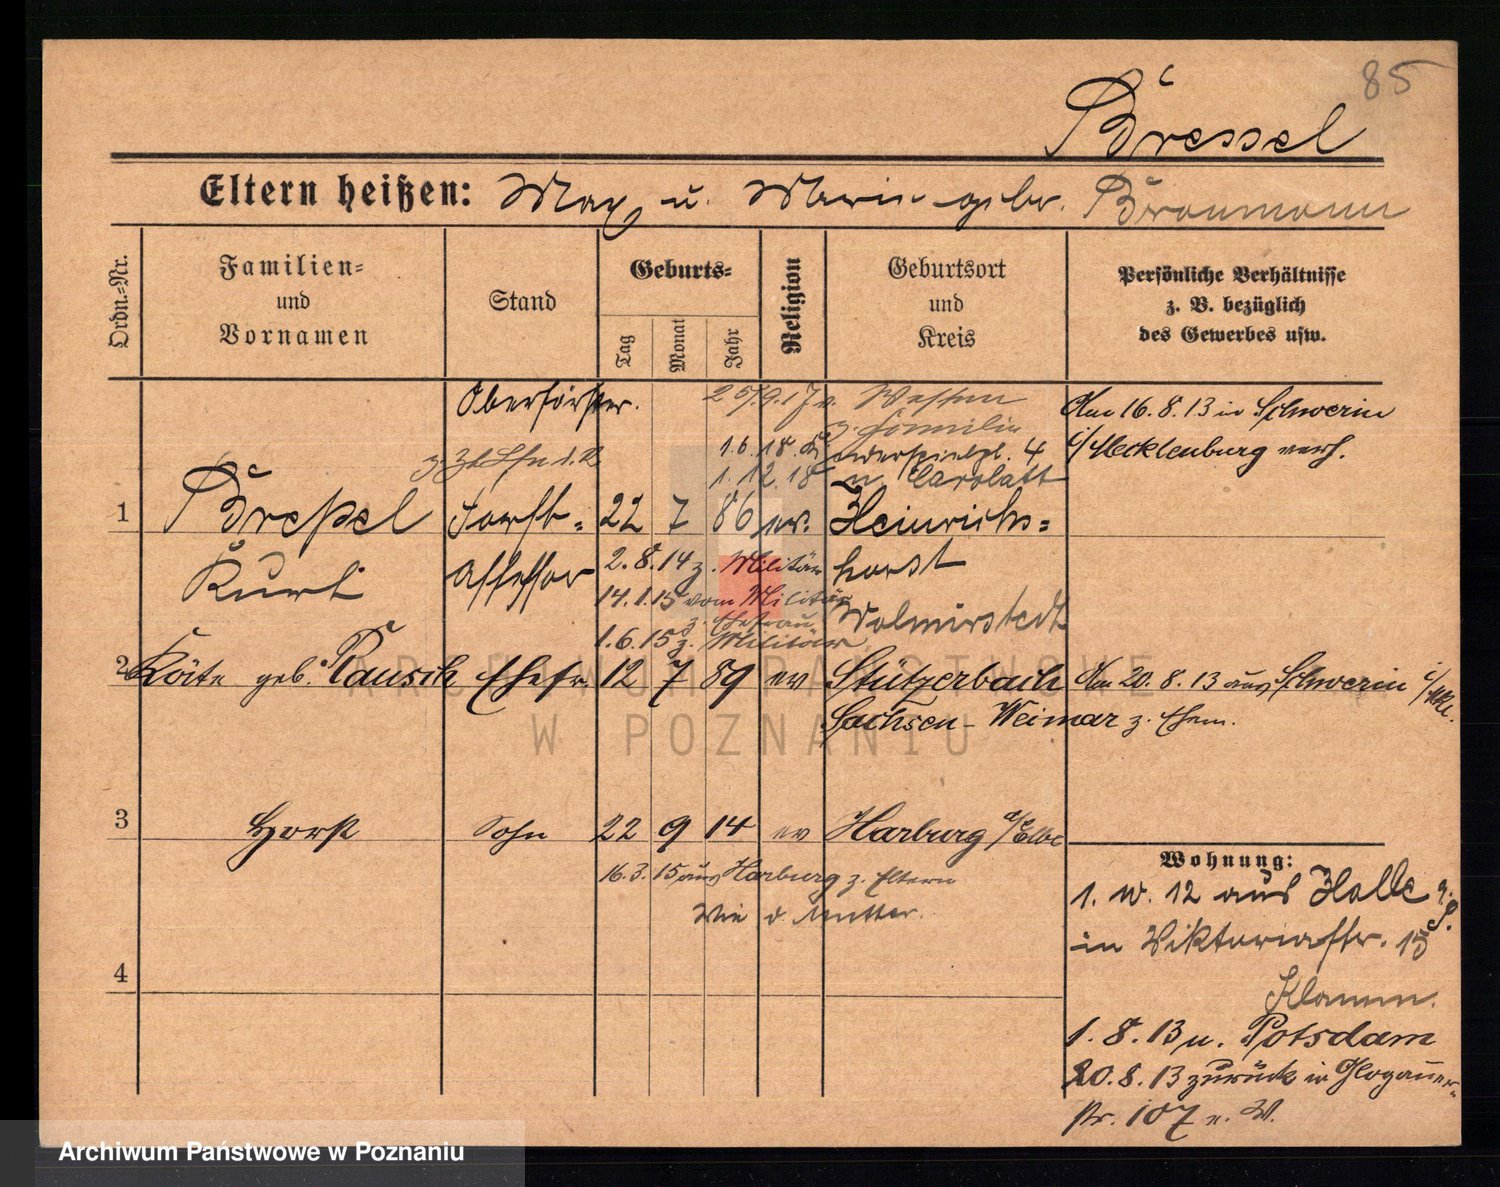 85
Bressel
Eltern heißen: Max u. Marie geb. Braumann
Ordn.-Nr.
Familien-
und
Vornamen
Stand
Geburts-
Tag
Monat
Jahr
Religion
Geburtsort
und
Kreis
Persönliche Verhältnisse
z. B. bezüglich
des Gewerbes usw.
Oberförster.
25/9.17 v. Westen
z. Familie
1.6.18.
4
1.12.18 n. Carolatt
Am 16.8.13 in Schwerin
i/Mecklenburg verh.
1 Breßel Forst- 22 7 86 ev. Heinrichs-
Kurt Assessor 2.8.14 z. Militär horst
14.1.15 vom Militär
z. Ehefrau
Wolmirstedt
1.6.15 z. Militär
2 Käte geb. Rausch Ehefr 12 7 89 ev Stützerbach Am 20.8.13 aus Schwerin i/Mkl.
Sachsen-Weimar z. Ehem.
3 Horst Sohn 22 9 14 ev Harburg a/Elbe
16.3.15 aus Harburg z. Eltern
Wie d Mutter.
4
Wohnung:
1. IV. 12 aus Halle a. S.
in Viktoriastr. 15
Klamm.
1.8.13 n. Potsdam
20.8.13 zurück in Glogauer-
str. 107 n. W.
ARCHIWUM PAŃSTWOWE
W POZNANIU
Archiwum Państwowe w Poznaniu